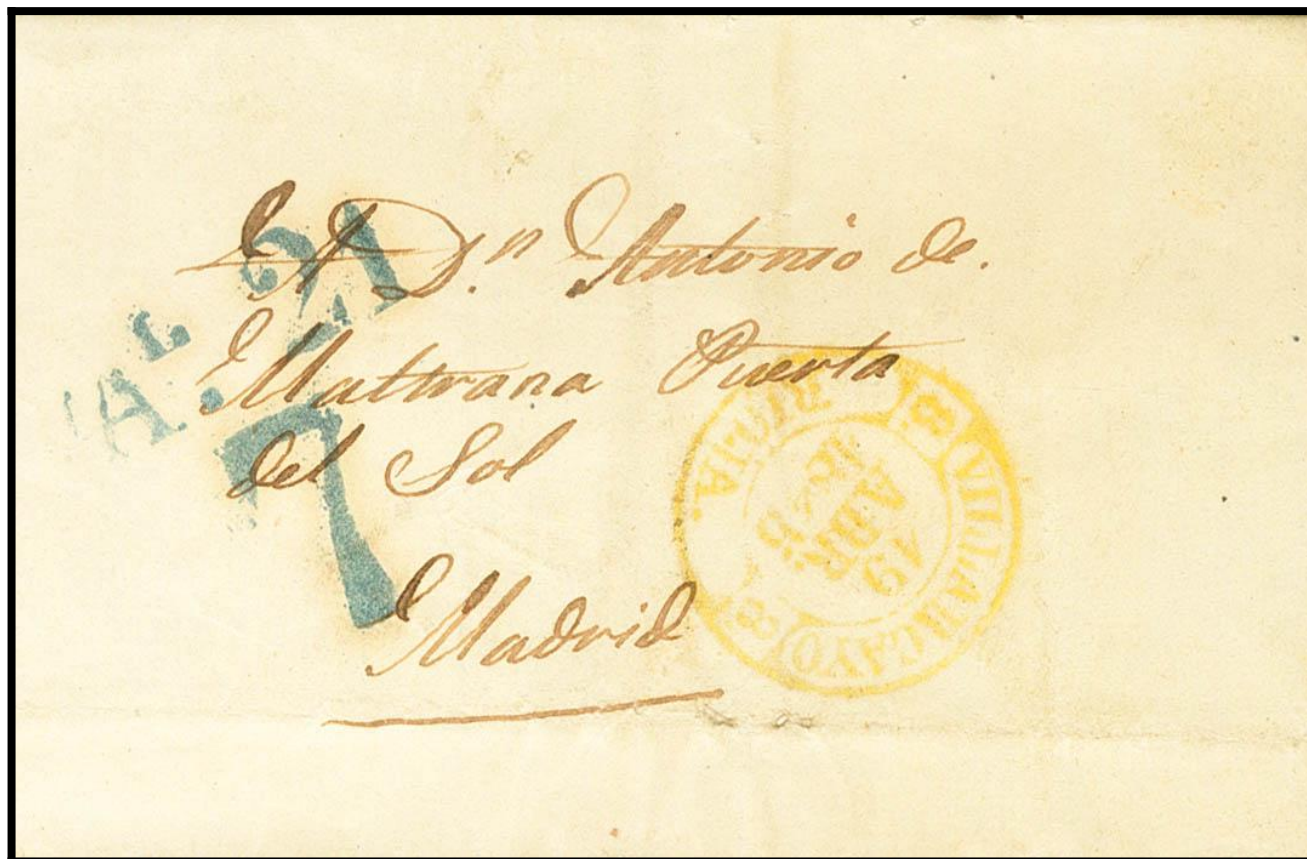 A Dn. Antonio de.
Mattrana Puerta
del Sol
Madrid
VILLARCAYO
8.
19
ABR
7